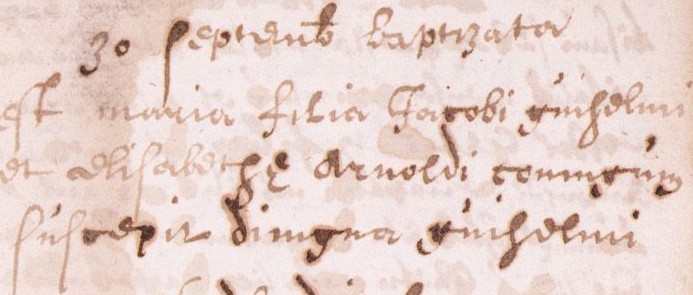 30 septemb baptizata
est maria filia Jacobi guihelmi
et elisabethę Arnoldi coniugum
suscepit dimgna guihelmi